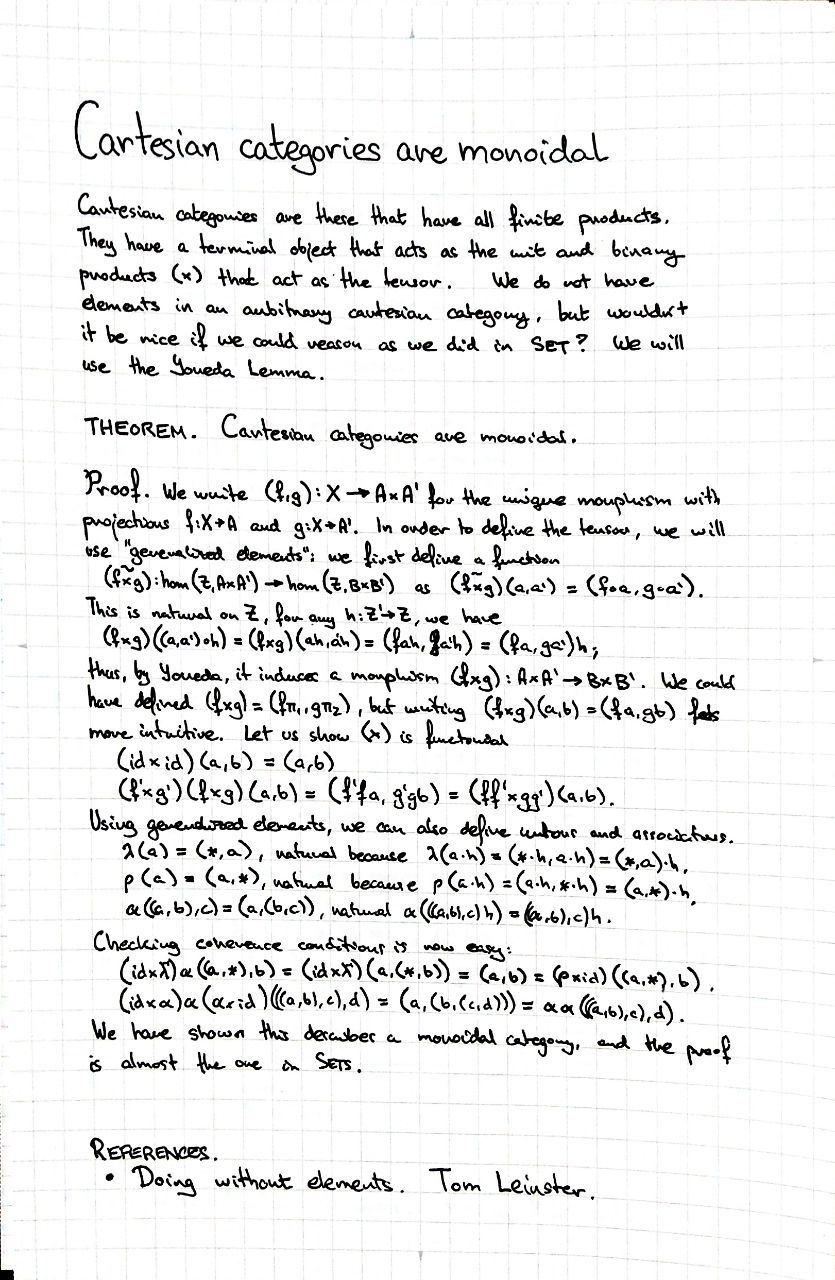 Cartesian categories are monoidal
Cartesian categories are these that have all finite products.
They have a terminal object that acts as the unit and binary
products (×) that act as the tensor. We do not have
elements in an arbitrary cartesian category, but wouldn't
it be nice if we could reason as we did in SET? We will
use the Yoneda Lemma.
THEOREM. Cartesian categories are monoidal.
Proof. We write (f,g): X → A×A' for the unique morphism with
projections f:X→A and g:X→A'. In order to define the tensor, we will
use "generalized elements": we first define a function
(f×̃g): hom(Z,A×A') → hom(Z,B×B') as (f×̃g)(a,a') = (f∘a, g∘a').
This is natural on Z, for any h:Z'→Z, we have
(f×g)((a,a')∘h) = (f×g)(ah,a'h) = (fah, ga'h) = (fa, ga')h;
thus, by Yoneda, it induces a morphism (f×g): A×A' → B×B'. We could
have defined (f×g) = (fπ₁,gπ₂), but writing (f×g)(a,b) = (fa,gb)
more intuitive. Let us show (×) is functorial
(id×id)(a,b) = (a,b)
(f'×g')(f×g)(a,b) = (f'fa, g'gb) = (ff'×gg')(a,b).
Using generalized elements, we can also define unitors and associators.
λ(a) = (*,a), natural because λ(a·h) = (*·h,a·h) = (*,a)·h,
ρ(a) = (a,*), natural because ρ(a·h) = (a·h,*·h) = (a,*)·h,
α((a,b),c) = (a,(b,c)), natural α(((a,b),c)h) = ((a,b),c)h.
Checking coherence conditions is now easy:
(id×λ)α((a,*),b) = (id×λ)(a,(*,b)) = (a,b) = (ρ×id)((a,*),b).
(id×α)α(α×id)(((a,b),c),d) = (a,(b,(c,d))) = αα(((a,b),c),d).
We have shown this describes a monoidal category, and the proof
is almost the one in SETS.
REFERENCES.
• Doing without elements. Tom Leinster.